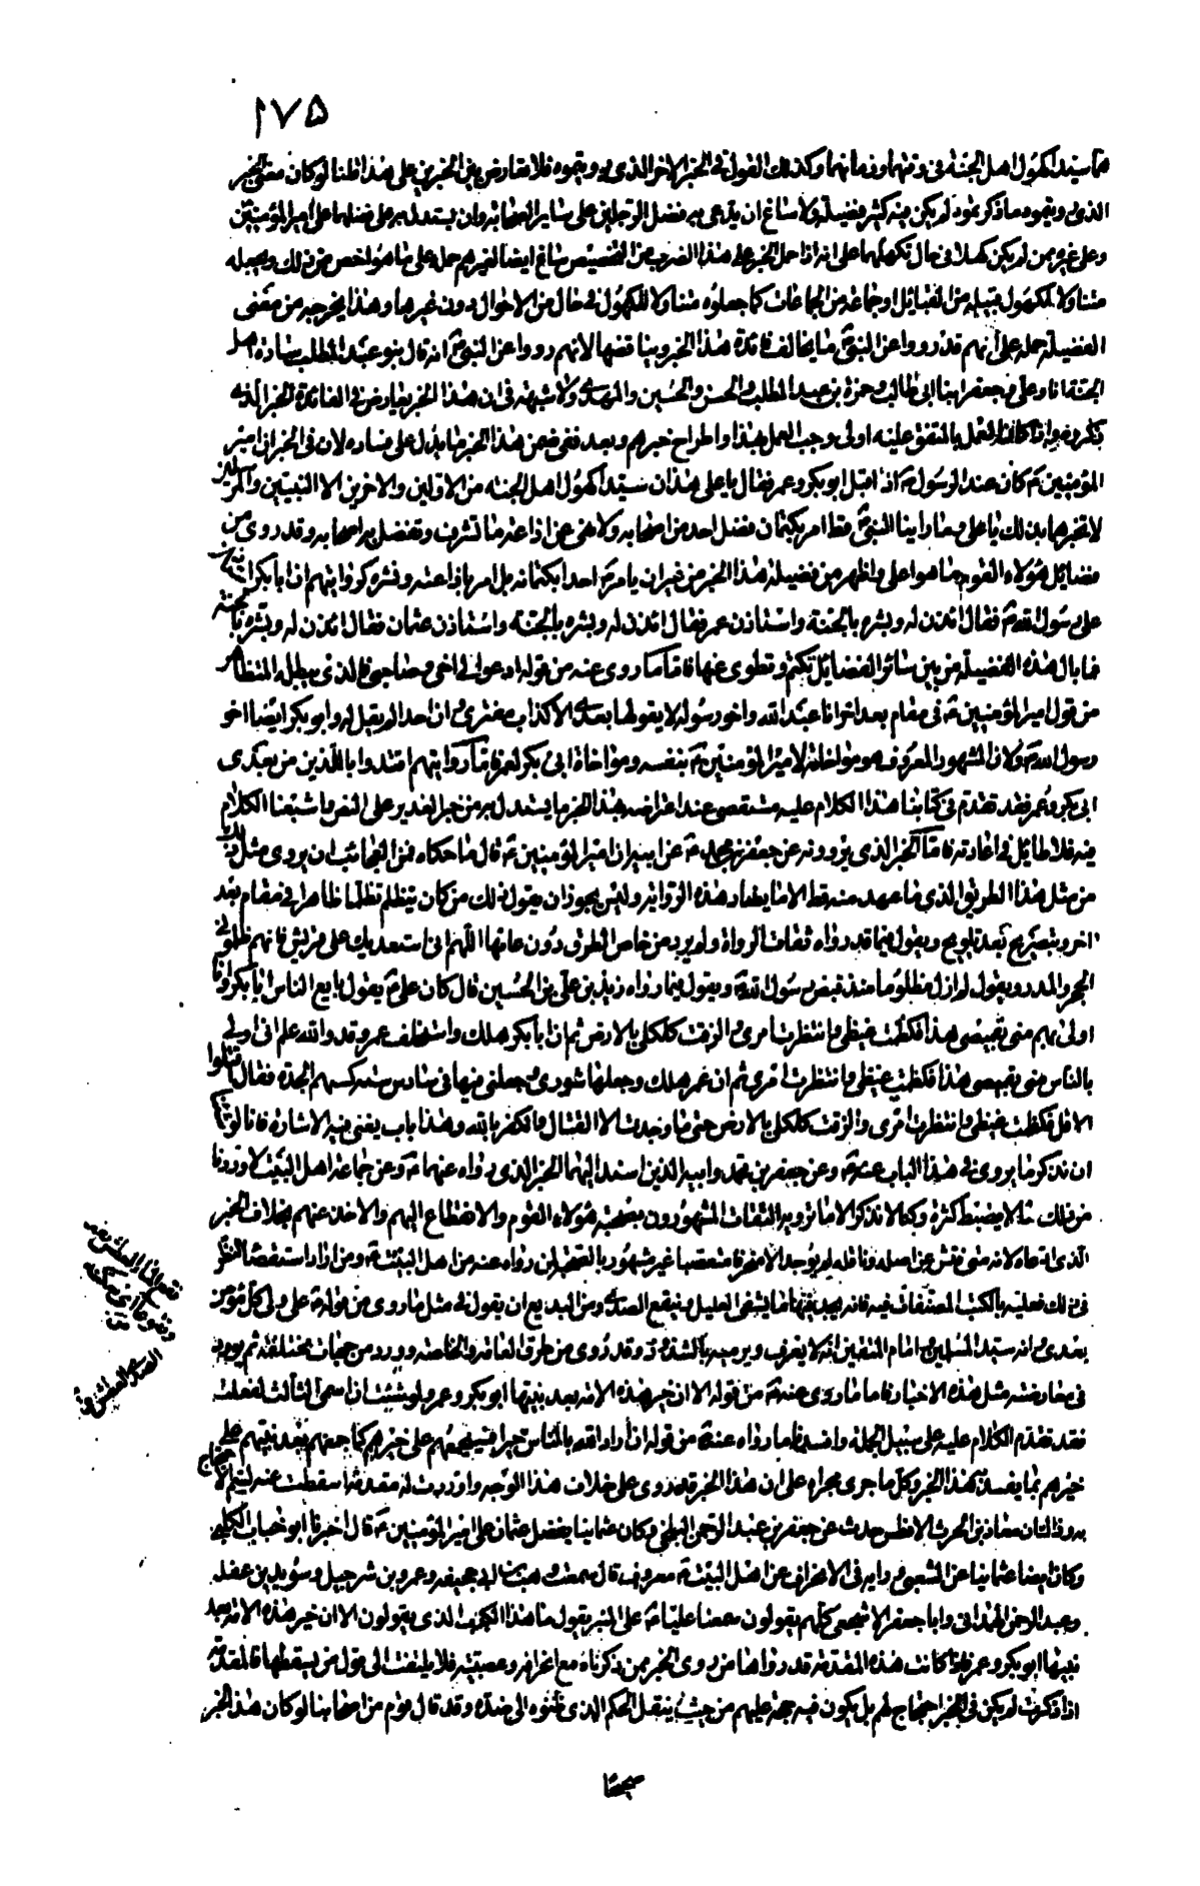 ١٧٥
هما سيدا كهول اهل الجنة في وقتهما وزمانهما وكذلك القول في الخبر الاخر الذي رويتموه فلا تعارض بين الخبرين على هذا قلنا لو كان معنى الخبر
الذي رويتموه ما ذكرتموه لم يكن فيه كثير فضيلة ولا ساغ ان يدعى به فضل الرجلين على ساير الصحابة وان يستدل به على فضلهما على امير المؤمنين
وعلى غيره ممن لم يكن كهلا في حال تكهلهما على انه اذا حمل الخبر على هذا الضرب من التخصيص ساغ ايضا لغيرهم حمله على ما هو اخص من ذلك ويجعله
متناولا لكهول قبيلة من القبائل او جماعة من الجماعات كما جعلوه متناولا للكهول في حال من الاحوال دون غيرها وهذا يخرجه من معنى
الفضيلة جملة على انهم قد رووا عن النبي ص ما يخالف فائدة هذا الخبر ويناقضها لانهم رووا عن النبي ص انه قال بنو عبد المطلب سادة اهل
الجنة انا وعلي وجعفر ابنا ابي طالب وحمزة بن عبد المطلب والحسن والحسين والمهدي ولا شبهة في ان هذا الخبر يعارض في الفائدة الخبر الذي
يذكرونه واذا كان العمل بالمتفق عليه اولى وجب العمل بهذا واطراح خبرهم وبعد ففي ضمن هذا الخبر ما يدل على فساده لان في الخبر ان امير
المؤمنين ع كان عند الرسول ص اذ اقبل ابو بكر وعمر فقال يا علي هذان سيدا كهول اهل الجنة من الاولين والاخرين الا النبيين والمرسلين
لا تخبرهما بذلك يا علي وما راينا النبي ص قط امر بكتمان فضل احد من اصحابه ولا نهى عن اذاعة ما تشرف وتفضل به اصحابه وقد روى من
فضائل هؤلاء القوم ما هو اعلى واظهر من فضيلة هذا الخبر من غير ان يامر ع احدا بكتمانه بل امر باذاعته ونشره كروايتهم ان ابا بكر استاذن
على رسول الله ص فقال ائذن له وبشره بالجنة واستاذن عمر فقال ائذن له وبشره بالجنة واستاذن عثمان فقال ائذن له وبشره بالجنة
فما بال هذه الفضيلة من بين سائر الفضائل تكتم وتطوى عنهما فاما ما روى عنه من قوله ادعوا لي اخي وصاحبي فالذي يبطله المتظاهر
من قول امير المؤمنين ع في مقام بعد اخر انا عبد الله واخو رسوله لا يقولها بعدي الا كذاب مفتري وان احدا لم يقل له وابو بكر ايضا اخو
رسول الله ص ولان المشهور المعروف هو مواخاته لامير المؤمنين ع بنفسه ومواخاة ابي بكر لعمر فاما روايتهم اقتدوا باللذين من بعدي
ابي بكر وعمر فقد تقدم في كتابنا هذا الكلام عليه مستقصى عند اعتراضه بهذا الخبر ما يستدل به من خبر الغدير على النص واشبعنا الكلام
فيه فلا طائل في اعادته فاما الخبر الذي يروونه عن جعفر بن محمد ع عن ابيه ان امير المؤمنين ع قال ما حكاه فمن العجائب ان يروى مثل ذلك
من مثل هذا الطريق الذي ما عهد منه قط الا ما يضاد هذه الرواية وليس يجوز ان يقول ذلك من كان يتظلم تظلما ظاهرا في مقام بعد
اخر وبتصريح بعد تلويح ويقول فيما قد رواه ثقات الرواة ولم يرد من خاص الطرق دون عامتها اللهم اني استعديك على قريش فانهم ظلموني
الحجر والمدر ويقول لم ازل مظلوما منذ قبض رسول الله ص ويقول فيما رواه زيد بن علي بن الحسين قال كان علي ع يقول بايع الناس ابا بكر وانا
اولى بهم مني بقميصي هذا فكظمت غيظي وانتظرت امري والزقت كلكلي بالارض ثم ان ابا بكر هلك واستخلف عمر وقد والله علم اني اولى
بالناس مني بقميصي هذا فكظمت غيظي وانتظرت امري ثم ان عمر هلك وجعلها شورى وجعلني فيها سادس ستة كسهم الجدة فقال اقتلوا
الاقل فكظمت غيظي وانتظرت امري والزقت كلكلي بالارض حتى ما وجدت الا القتال والكفر بالله وهذا باب يغني فيه الاشارة فانا لو شئنا
ان نذكر ما يروى في هذا الباب عنه ع وعن جعفر بن محمد وابيه الذين اسند اليهما الخبر الذي رواه عنهما ع وعن جماعة اهل البيت لاوردنا
من ذلك ما لا يضبط كثرة وكنا لا نذكر الا ما ترويه الثقات المشهورون بصحبة هؤلاء القوم والانقطاع اليهم والاخذ عنهم بخلاف الخبر
الذي ادعاه لانه متى فتش عن اصله وناقله لم يوجد الا منحرفا متعصبا غير مشهور بالصحبة لمن رواه عنه من اهل البيت ع ومن اراد استقصاء النظر
في ذلك فعليه بالكتب المصنفات فيه فانه يجد فيها ما يشفي العليل وينقع الصدي ومن البديع ان يقول في مثل ما روى من قوله في علي ولي كل مؤمن
بعدي وانه سيد المسلمين وامام المتقين انه لا يعرف ويرميه بالشذوذ وقد روى من طرق العامة والخاصة وورد من جهات مختلفة ثم يورد
في معارضته مثل هذه الاخبار فاما ما روى عنه ع من قوله الا ان خير هذه الامة بعد نبيها ابو بكر وعمر ولو شئت ان اسمي الثالث لفعلت
فقد تقدم الكلام عليه على سبيل الجملة وافسدنا ما رواه عنه من قوله ان اراد الله بالناس خيرا فسيجمعهم على خيرهم كما جمعهم بعد نبيهم على
خيرهم بما يفسد بهذا الخبر وكل ما جرى مجراه على ان هذا الخبر قد روى على خلاف هذا الوجه واوردت له مقدمة اسقطت عنه ليتم الاحتجاج
به وذلك ان معاذ بن الحرث الافطس حدث عن جعفر بن عبد الرحمن البلخي وكان عثمانيا يفضل عثمان على امير المؤمنين ع قال اخبرنا ابو خباب الكلبي
وكان ايضا عثمانيا عن الشعبي ورايه في الانحراف عن اهل البيت ع معروف قال سمعت وهب بن ابي جحيفة وعمرو بن شرحبيل وسويد بن غفلة
وعبد الرحمن الهمداني وابا جعفر الاشجعي كلهم يقولون سمعنا عليا ع على المنبر يقول ما هذا الكذب الذي يقولون الا ان خير هذه الامة بعد
نبيها ابو بكر وعمر فاذا كانت هذه المقدمة قد رواها من روى الخبر ممن ذكرناه مع انحرافه وعصبيته فلا يلتفت الى قول من يسقطها فالمقدمة
اذا ذكرت لم يكن في الخبر احتجاج لهم بل يكون فيه حجة عليهم من حيث ينقل الحكم الذي ظنوه الى ضده وقد قال قوم من اصحابنا لو كان هذا الخبر
صحيحا